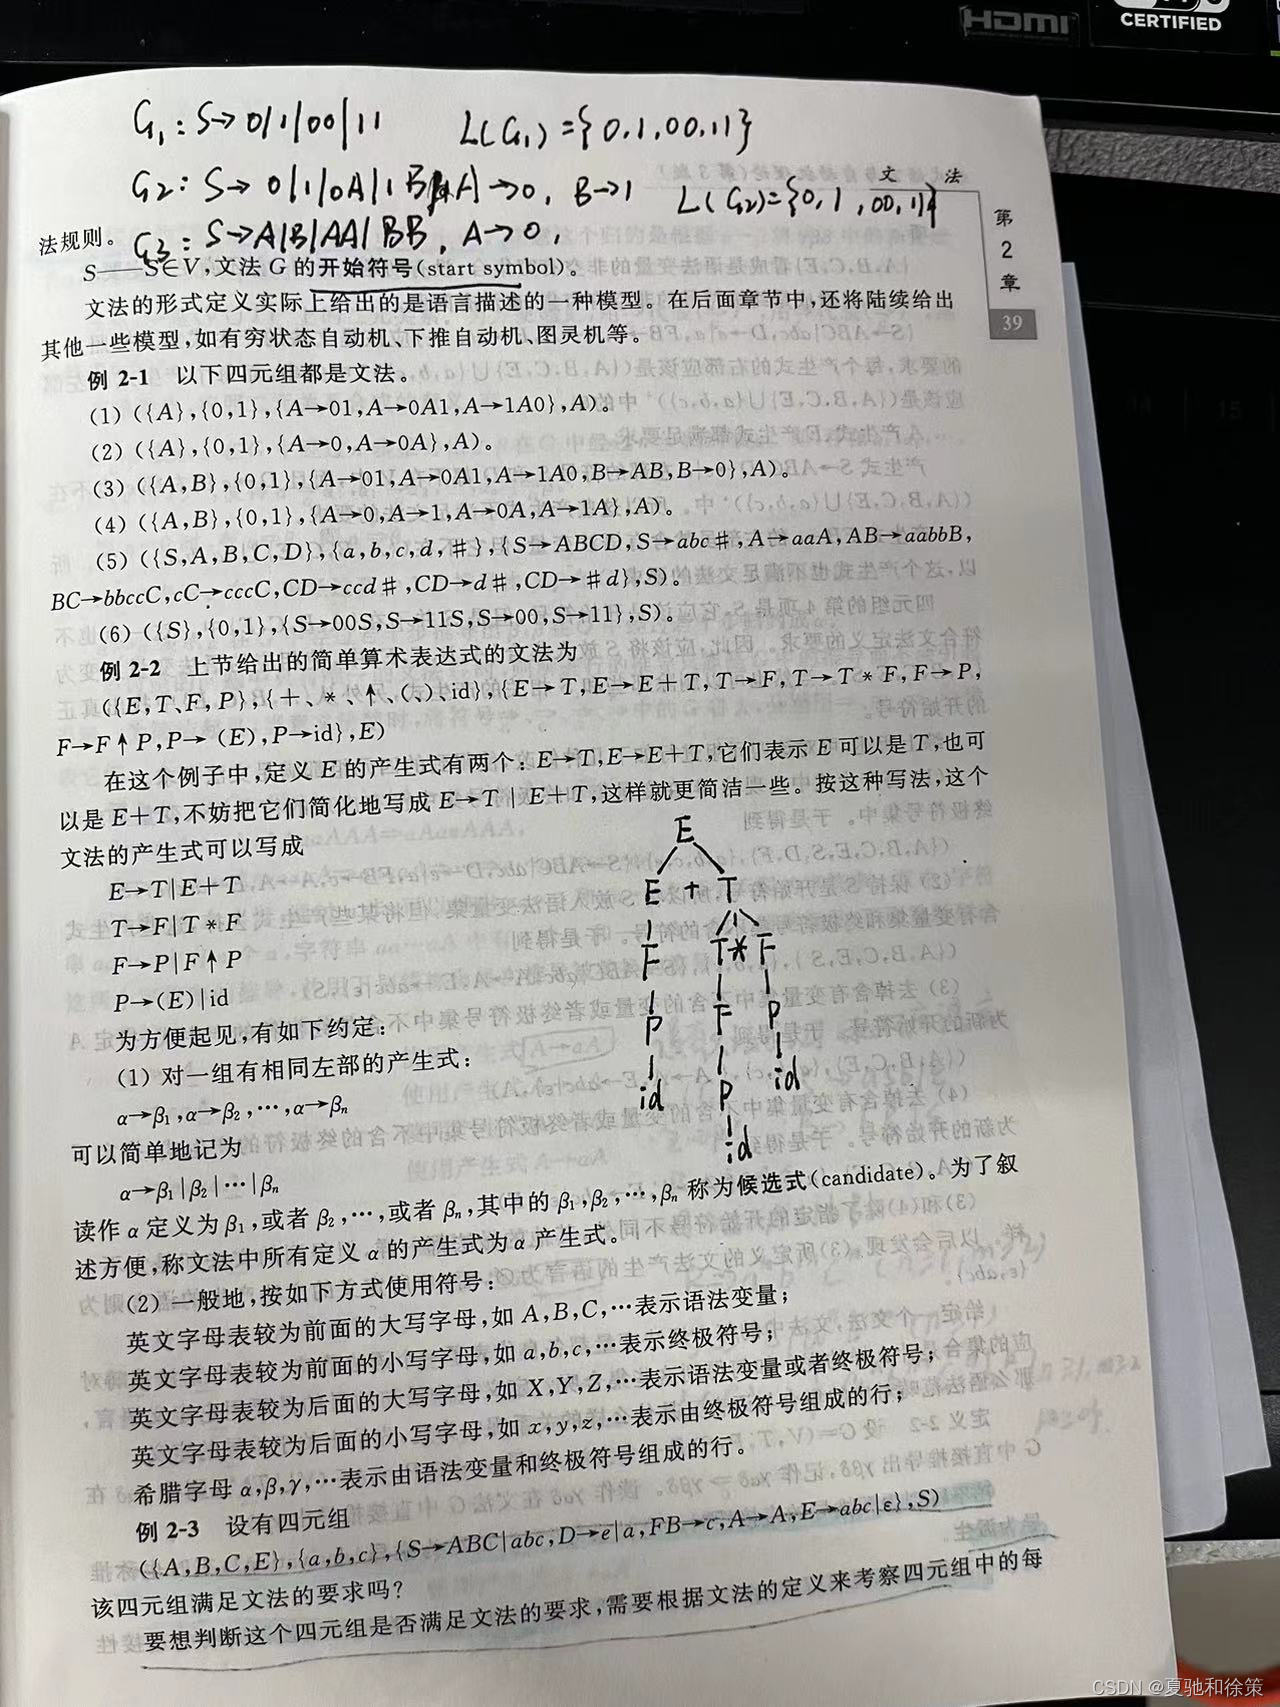 HDMI
CERTIFIED
G₁: S→0|1|00|11 L(G₁)={0,1,00,11}
文 法
G2: S→0|1|0A|1B A→0, B→1 L(G2)={0,1,00,11}
G3: S→A|B|AA|BB, A→0,
第
2
章
39
法规则。
S——S∈V,文法 G 的开始符号(start symbol)。
文法的形式定义实际上给出的是语言描述的一种模型。在后面章节中,还将陆续给出
其他一些模型,如有穷状态自动机、下推自动机、图灵机等。
例 2-1 以下四元组都是文法。
(1) ({A},{0,1},{A→01,A→0A1,A→1A0},A)。
(2) ({A},{0,1},{A→0,A→0A},A)。
(3) ({A,B},{0,1},{A→01,A→0A1,A→1A0,B→AB,B→0},A)。
(4) ({A,B},{0,1},{A→0,A→1,A→0A,A→1A},A)。
(5) ({S,A,B,C,D},{a,b,c,d,#},{S→ABCD,S→abc#,A→aaA,AB→aabbB,
BC→bbccC,cC→cccC,CD→ccd#,CD→d#,CD→#d},S)。
(6) ({S},{0,1},{S→00S,S→11S,S→00,S→11},S)。
例 2-2 上节给出的简单算术表达式的文法为
({E,T、F,P},{+、*、↑、(、)、id},{E→T,E→E+T,T→F,T→T*F,F→P,
F→F↑P,P→(E),P→id},E)
在这个例子中,定义 E 的产生式有两个:E→T,E→E+T,它们表示 E 可以是 T,也可
以是 E+T,不妨把它们简化地写成 E→T | E+T,这样就更简洁一些。按这种写法,这个
文法的产生式可以写成
E→T|E+T
T→F|T*F
F→P|F↑P
P→(E)|id
E
E + T
F T*F
P F P
id P id
id
为方便起见,有如下约定:
(1) 对一组有相同左部的产生式:
α→β₁,α→β₂,…,α→βₙ
可以简单地记为
α→β₁|β₂|…|βₙ
读作 α 定义为 β₁,或者 β₂,…,或者 βₙ,其中的 β₁,β₂,…,βₙ 称为候选式(candidate)。为了叙
述方便,称文法中所有定义 α 的产生式为 α 产生式。
(2) 一般地,按如下方式使用符号:
英文字母表较为前面的大写字母,如 A,B,C,…表示语法变量;
英文字母表较为前面的小写字母,如 a,b,c,…表示终极符号;
英文字母表较为后面的大写字母,如 X,Y,Z,…表示语法变量或者终极符号;
英文字母表较为后面的小写字母,如 x,y,z,…表示由终极符号组成的行;
希腊字母 α,β,γ,…表示由语法变量和终极符号组成的行。
例 2-3 设有四元组
({A,B,C,E},{a,b,c},{S→ABC|abc,D→e|a,FB→c,A→A,E→abc|ε},S)
该四元组满足文法的要求吗?
要想判断这个四元组是否满足文法的要求,需要根据文法的定义来考察四元组中的每
CSDN @夏驰和徐策